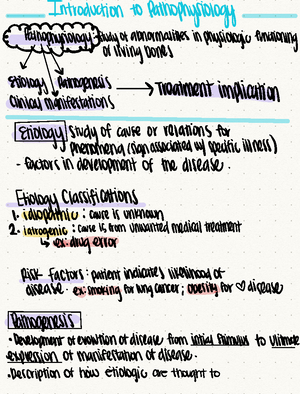 Introduction to Pathophysiology
Pathophysiology: study of abnormalities in physiologic functioning
of living bones
Etiology Pathogenesis
Clinical manifestations → Treatment implication
Etiology study of cause or relations for
phenomena (sign associated w/ specific illness)
- factors in development of the disease.
Etiology Classifications
1. idiopathic : cause is unknown
2. iatrogenic : cause is from unwanted medical treatment
↳ ex: drug error
Risk Factors : patient indicates likelihood of
disease. ex: smoking for lung cancer; obesity for disease
Pathogenesis
• Development of evolution of disease from initial stimulus to ultimate
expression of manifestation of disease.
• Description of how etiologic are thought to